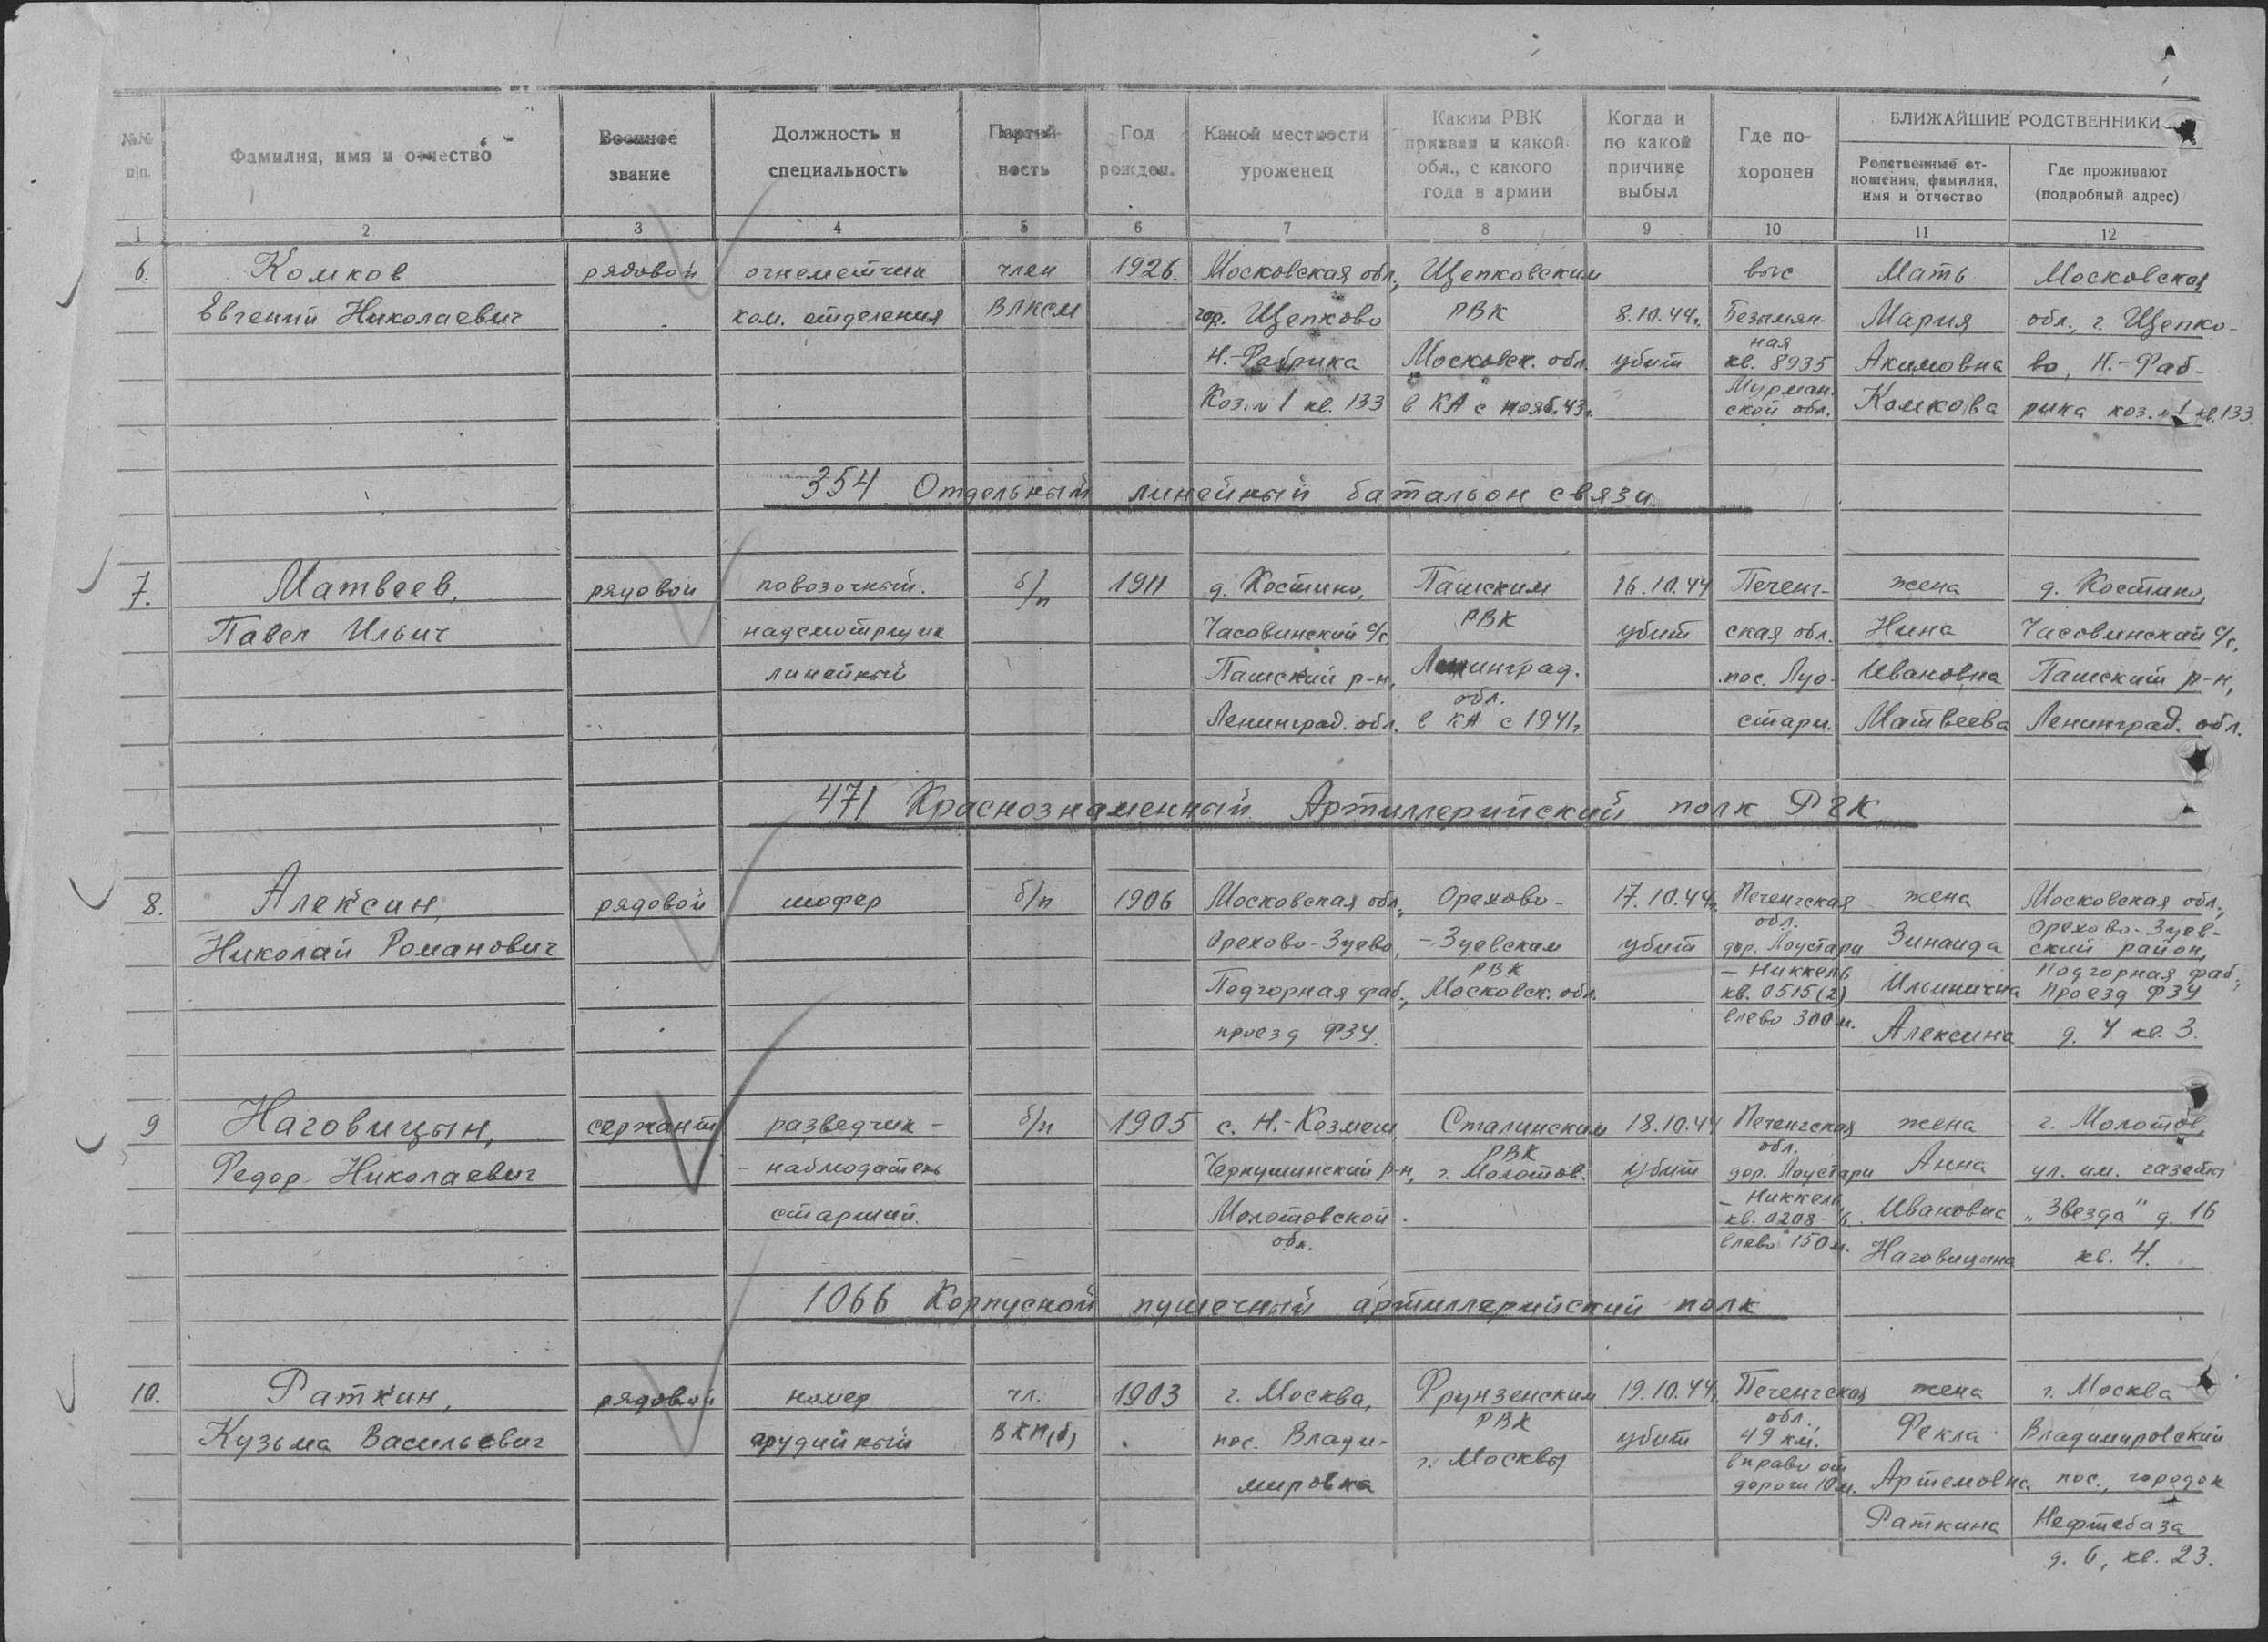 №№ п|п.
Фамилия, имя и отчество
Военное звание
Должность и специальность
Партий- ность
Год рожден.
Какой местности уроженец
Каким РВК призван и какой обл., с какого года в армии
Когда и по какой причине выбыл
Где по- хоронен
БЛИЖАЙШИЕ РОДСТВЕННИКИ
Родственные от- ношения, фамилия, имя и отчество
Где проживают (подробный адрес)
1 2 3 4 5 6 7 8 9 10 11 12
6. Комков рядовой огнеметчик член 1926. Московская обл., Щелковским выс Мать Московская
Евгений Николаевич ком. отделения ВЛКСМ гор. Щелково РВК 8.10.44г. Безымян- Мария обл., г. Щелко-
ная
Н.-Фабрика Московск. обл. убит кв. 8935 Акимовна во, Н.-Фаб-
Мурман.
Каз. № 1 кв. 133 в КА с нояб. 43г. ской обл. Комкова рика каз. № 1 кв. 133.
354 Отдельный линейный батальон связи.
7. Матвеев, рядовой повозочный. б/п 1911 д. Костино, Пашским 16.10.44 Печенг- жена д. Костино,
Павел Ильич надсмотрщик Часовинский с/с РВК убит ская обл. Нина Часовинский с/с,
линейный Пашский р-н, Ленинград. пос. Луо- Ивановна Пашский р-н,
обл.
Ленинград. обл. в КА с 1941г. стари. Матвеева Ленинград. обл.
471 Краснознаменный Артиллерийский полк РГК
8. Алексин, рядовой шофер б/п 1906 Московская обл., Орехово- 17.10.44г. Печенгская жена Московская обл.,
обл. Орехово-Зуев-
Николай Романович Орехово-Зуево, -Зуевским убит дор. Лоустари Зинаида ский район,
РВК – Никкель Подгорная фаб.,
Подгорная фаб., Московск. обл. кв. 0515(2) Ильинична проезд ФЗУ
влево 300 м.
проезд ФЗУ. Алексина д. 4 кв. 3.
9 Наговицын, сержант разведчик- б/п 1905 с. Н.-Козмеш Сталинским 18.10.44 Печенгская жена г. Молотов,
РВК обл.
Федор Николаевич -наблюдатель Чернушинский р-н, г. Молотов. убит дор. Лоустари Анна ул. им. газеты
– Никкель,
старший. Молотовской кв. 0208-б. Ивановна „Звезда" д. 16
обл. влево 150 м.
Наговицына кв. 4.
1066 Корпусной пушечный артиллерийский полк
10. Раткин, рядовой номер чл. 1903 г. Москва, Фрунзенским 19.10.44г. Печенгская жена г. Москва
РВК обл.,
Кузьма Васильевич орудийный ВКП(б) пос. Влади- г. Москвы убит 49 км. Фекла Владимировский
вправо от
мировка дороги 10 м. Артемовна пос., городок
Раткина Нефтебаза
д. 6, кв. 23.